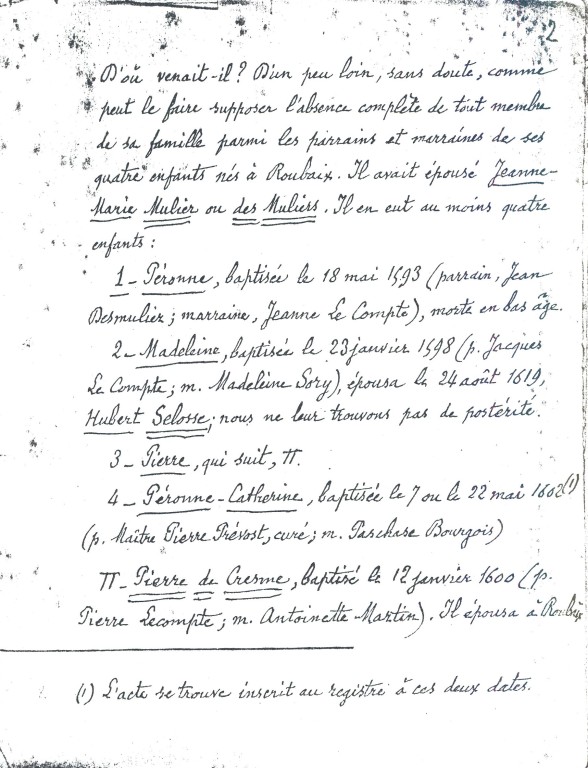 2
D'où venait-il ? D'un peu loin, sans doute, comme
peut le faire supposer l'absence complète de tout membre
de sa famille parmi les parrains et marraines de ses
quatre enfants nés à Roubaix. Il avait épousé Jeanne-
Marie Mulier ou des Muliers. Il en eut au moins quatre
enfants :
1 - Péronne, baptisée le 18 mai 1593 (parrain, Jean
Desmulier ; marraine, Jeanne Le Compte), morte en bas âge.
2 - Madeleine, baptisée le 23 janvier 1598 (p. Jacques
Le Compte ; m. Madeleine Sory), épousa le 24 août 1619,
Hubert Selosse ; nous ne leur trouvons pas de postérité.
3 - Pierre, qui suit, II.
4 - Péronne-Catherine, baptisée le 7 ou le 22 mai 1602 (1)
(p. Maître Pierre Prévost, curé ; m. Paschase Bourgois)
II - Pierre de Cresme, baptisé le 12 janvier 1600 (p.
Pierre Lecompte ; m. Antoinette Martin). Il épousa à Roubaix
(1) L'acte se trouve inscrit au registre à ces deux dates.